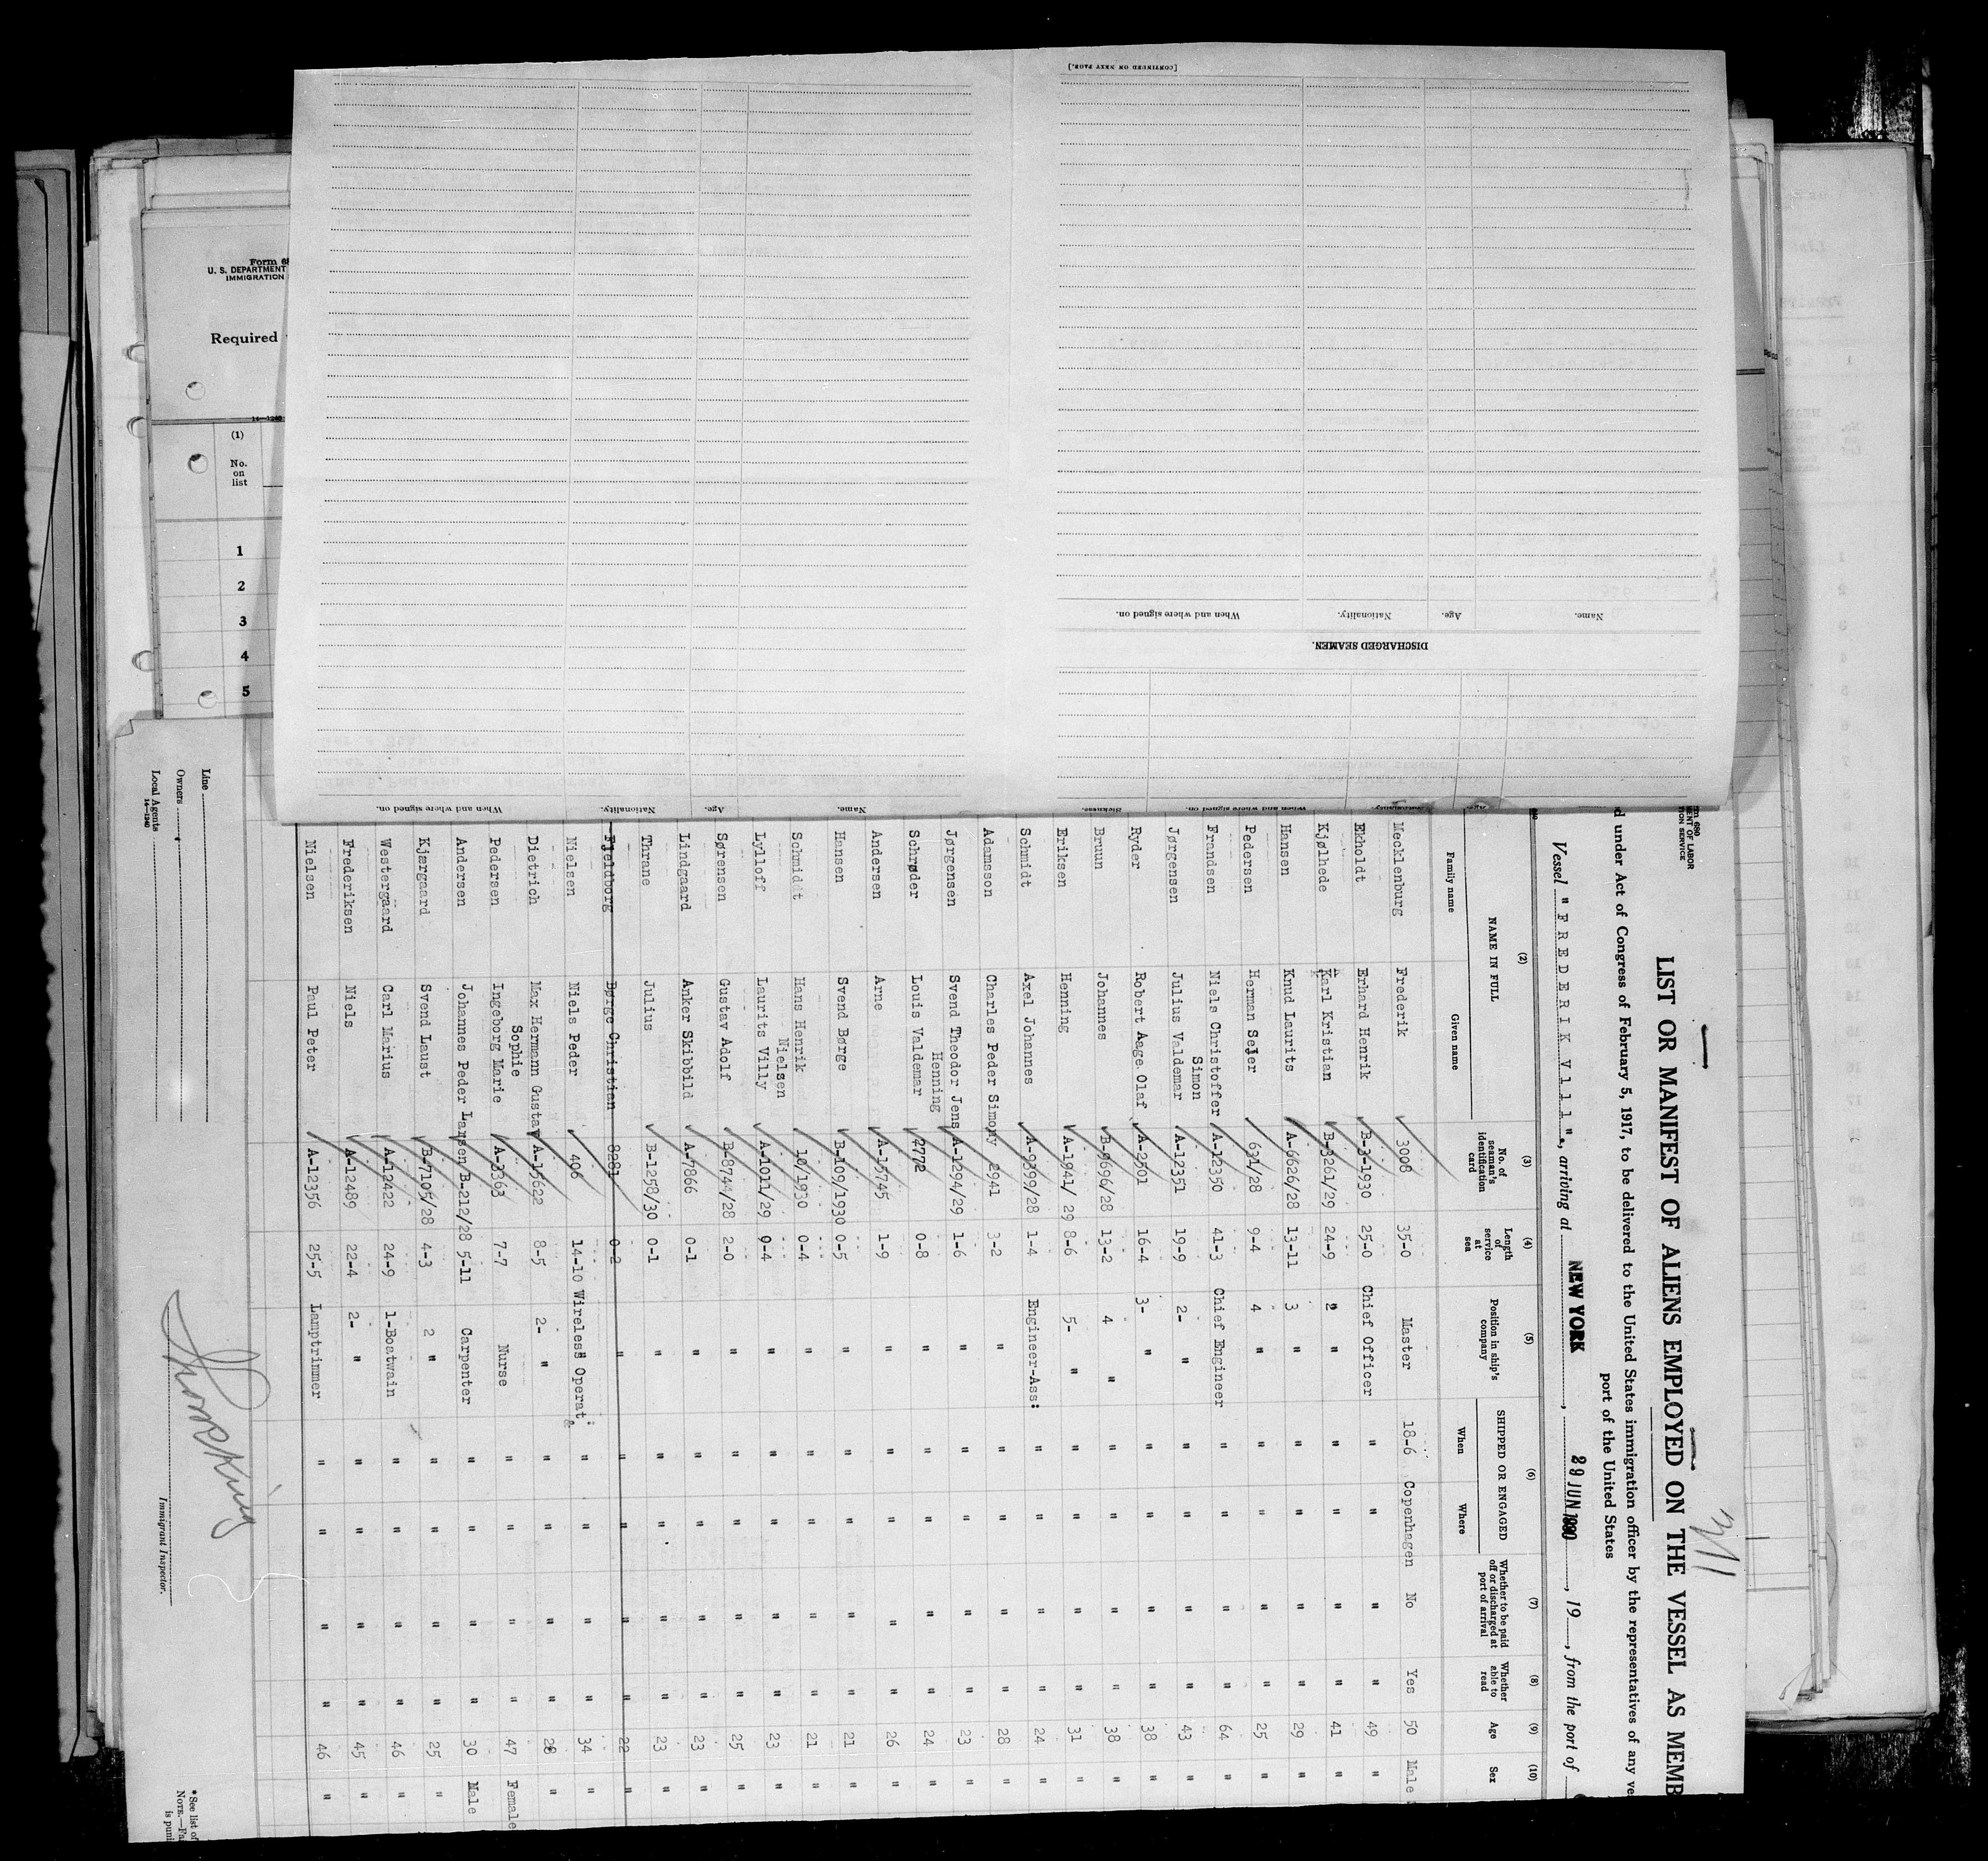 [CONTINUED ON NEXT PAGE.]
Name. Age. Nationality. When and where signed on.
DISCHARGED SEAMEN.
Name. Age. Nationality. When and where signed on.
U. S. DEPARTMENT
IMMIGRATION
Required
14-1240
(1)
No.
on
list
1
2
3
4
5
LIST OR MANIFEST OF ALIENS EMPLOYED ON THE VESSEL AS MEMB
d under Act of Congress of February 5, 1917, to be delivered to the United States immigration officer by the representatives of any ve
port of the United States
Vessel " F R E D E R I K V l l l ", arriving at NEW YORK, 29 JUN 1930, 19, from the port of
(2) (3) (4) (5) (6) (7) (8) (9) (10)
NAME IN FULL
Family name Given name
No. of seaman's identification card
Length of service at sea
Position in ship's company
SHIPPED OR ENGAGED
When Where
Whether to be paid off or discharged at port of arrival
Whether able to read
Age
Sex
Mecklenburg Frederik 3008 35-0 Master 18-6 Copenhagen No Yes 50 Male
Ekholdt Erhard Henrik B-3-1930 25-0 Chief Officer " " " " 49 "
Kjølhede Karl Kristian B-3261/29 24-9 2 " " " " " 41 "
Hansen Knud Laurits A-6626/28 13-11 3 " " " " " 29 "
Pedersen Herman Sejer 631/28 9-4 4 " " " " " 25 "
Frandsen Niels Christoffer A-12350 41-3 Chief Engineer " " " " 64 "
Simon
Jørgensen Julius Valdemar A-12351 19-9 2- " " " " " 43 "
Ryder Robert Aage Olaf A-2501 16-4 3- " " " " " 38 "
Bruun Johannes B-9696/28 13-2 4 " " " " " 38 "
Eriksen Henning A-1941/ 29 8-6 5- " " " " " 31 "
Schmidt Axel Johannes A-9399/28 1-4 Engineer-Ass: " " " " 24 "
Adamsson Charles Peder Simony 2941 3-2 " " " " " 28 "
Jørgensen Svend Theodor Jens A-1294/29 1-6 " " " " " 23 "
Henning
Schrøder Louis Valdemar 2772 0-8 " " " " " 24 "
Andersen Arne A-15745 1-9 " " " " " 26 "
Hansen Svend Børge B-109/1930 0-5 " " " " " 21 "
Schmiddt Hans Henrik 10/1930 0-4 " " " " " 21 "
Nielsen
Lylloff Laurits Villy A-1011/29 0-4 " " " " " 23 "
Sørensen Gustav Adolf B-8744/28 2-0 " " " " " 25 "
Lindgaard Anker Skibbild A-7866 0-1 " " " " " 23 "
Thrane Julius B-1258/30 0-1 " " " " " 23 "
Fjeldborg Børge Christian 8281 0-2 " " " " " 22 "
Nielsen Niels Peder 406 14-10 Wireless Operat: " " " " 34 "
Dietrich Max Hermann Gustav A-15622 8-5 2- " " " " " 28 "
Sophie
Pedersen Ingeborg Marie A-3363 7-7 Nurse " " " " 47 Female
Andersen Johannes Peder Larsen B-212/28 5-11 Carpenter " " " " 30 Male
Kjærgaard Svend Laust B-7105/28 4-3 2 " " " " " 25 "
Westergaard Carl Marius A-12422 24-9 1-Boatwain " " " " 46 "
Frederiksen Niels A-12489 22-4 2- " " " " " 45 "
Nielsen Paul Peter A-12356 25-5 Lamptrimmer " " " " 46 "
Line
Owners
Local Agents
14-1240
Immigrant Inspector.
* See list of
NOTE.—Fa
is puni